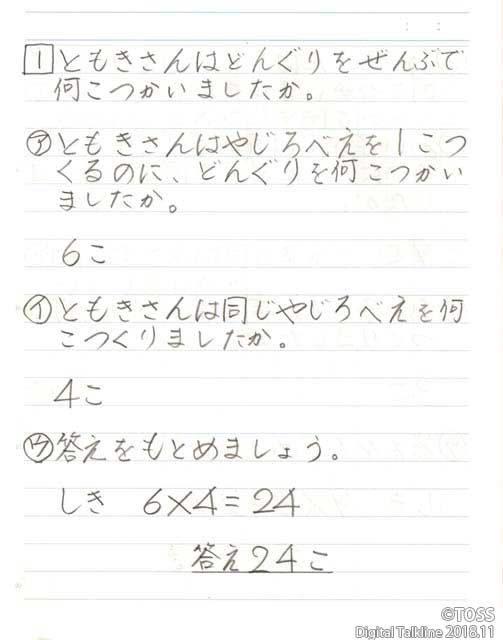 1 ともきさんはどんぐりをぜんぶで
何こつかいましたか。
㋐ともきさんはやじろべえを1こつ
くるのに、どんぐりを何こつかい
ましたか。
6こ
㋑ともきさんは同じやじろべえを何
こつくりましたか。
4こ
㋒答えをもとめましょう。
しき 6×4=24
答え24こ
©TOSS
Digital Talkline 2018.11